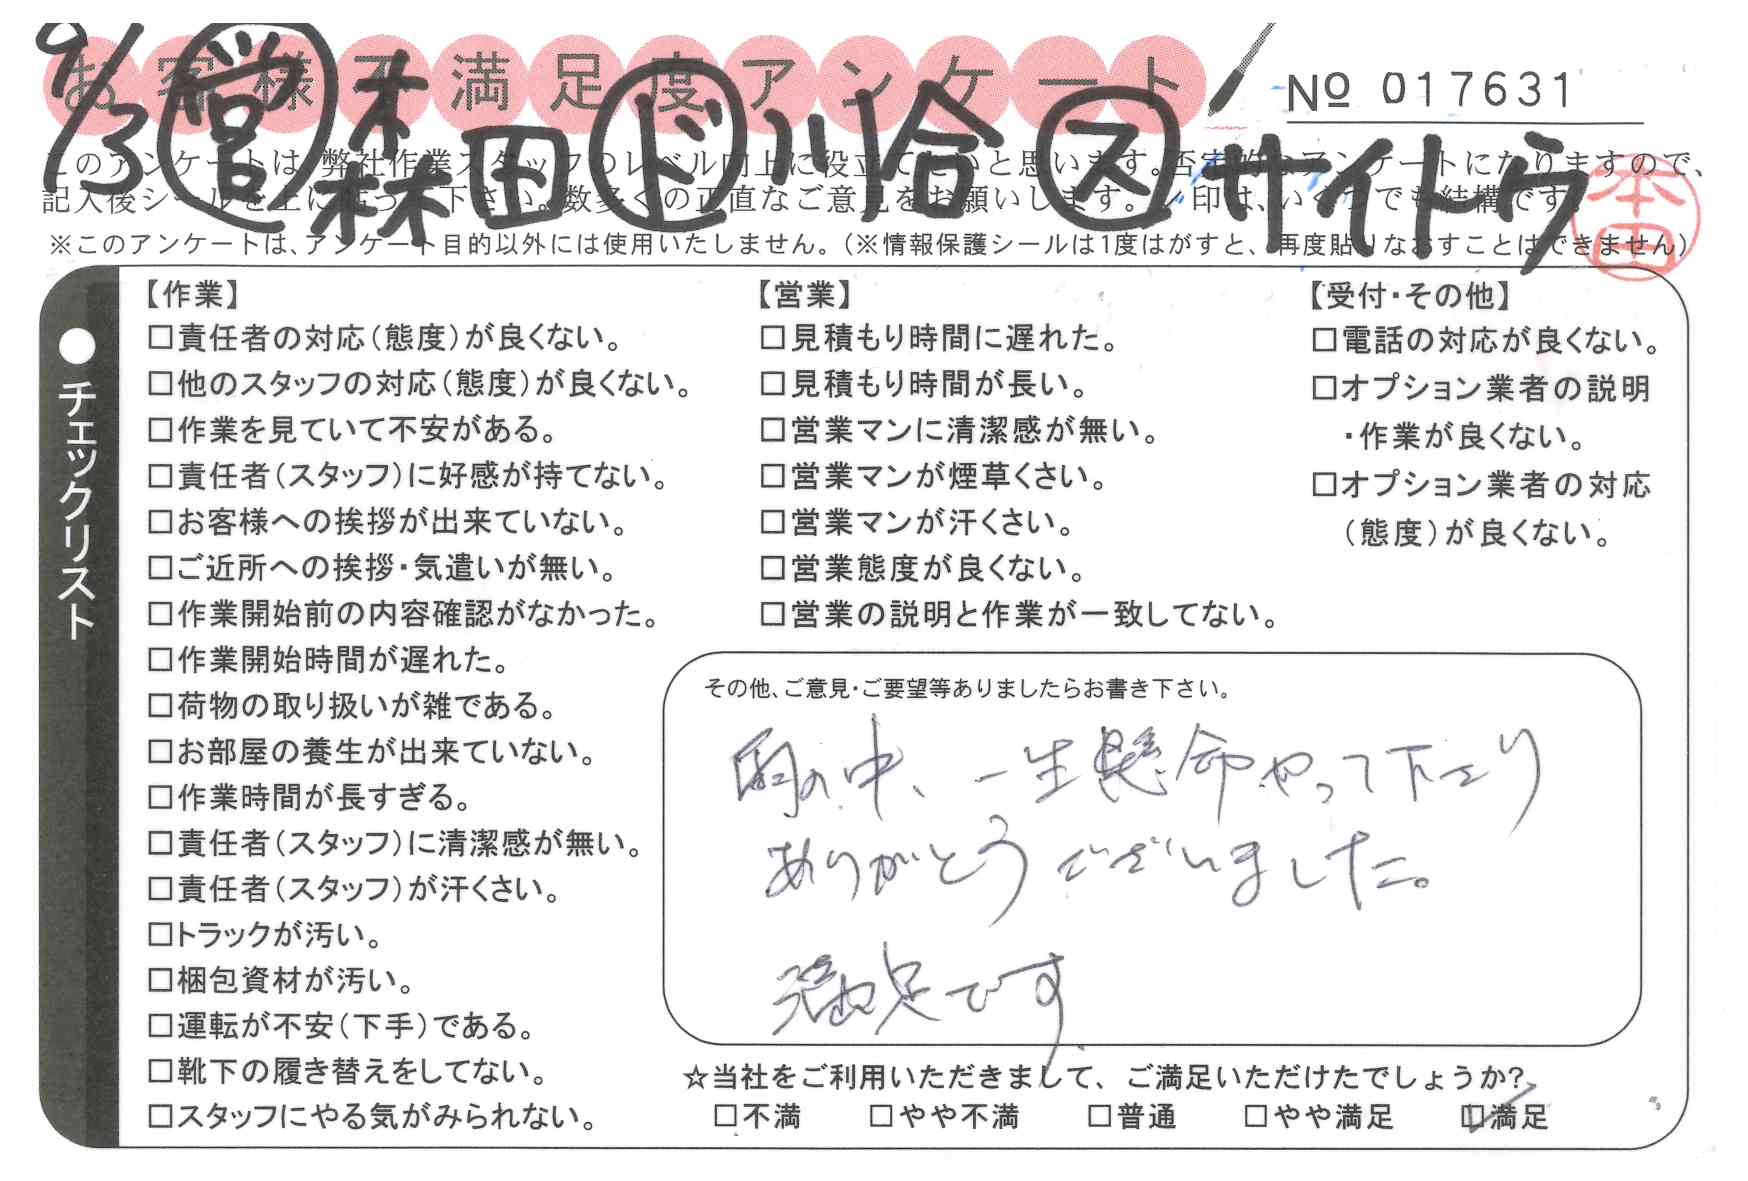 お客様不満足度アンケート
№ 017631
9/3 営 森田 ド 川合 ス サイトウ
このアンケートは、弊社作業スタッフのレベル向上に役立てたいと思います。否定的なアンケートになりますので、
記入後シールを上に貼って下さい。数多くの正直なご意見をお願いします。✓印は、いくつでも結構です。
本田
※このアンケートは、アンケート目的以外には使用いたしません。(※情報保護シールは1度はがすと、再度貼りなおすことはできません)
●チェックリスト
【作業】
□責任者の対応(態度)が良くない。
□他のスタッフの対応(態度)が良くない。
□作業を見ていて不安がある。
□責任者(スタッフ)に好感が持てない。
□お客様への挨拶が出来ていない。
□ご近所への挨拶・気遣いが無い。
□作業開始前の内容確認がなかった。
□作業開始時間が遅れた。
□荷物の取り扱いが雑である。
□お部屋の養生が出来ていない。
□作業時間が長すぎる。
□責任者(スタッフ)に清潔感が無い。
□責任者(スタッフ)が汗くさい。
□トラックが汚い。
□梱包資材が汚い。
□運転が不安(下手)である。
□靴下の履き替えをしてない。
□スタッフにやる気がみられない。
【営業】
□見積もり時間に遅れた。
□見積もり時間が長い。
□営業マンに清潔感が無い。
□営業マンが煙草くさい。
□営業マンが汗くさい。
□営業態度が良くない。
□営業の説明と作業が一致してない。
【受付・その他】
□電話の対応が良くない。
□オプション業者の説明
・作業が良くない。
□オプション業者の対応
(態度)が良くない。
その他、ご意見・ご要望等ありましたらお書き下さい。
雨の中、一生懸命やって下さり
ありがとうございました。
満足です
☆当社をご利用いただきまして、ご満足いただけたでしょうか?
□不満 □やや不満 □普通 □やや満足 ☑満足